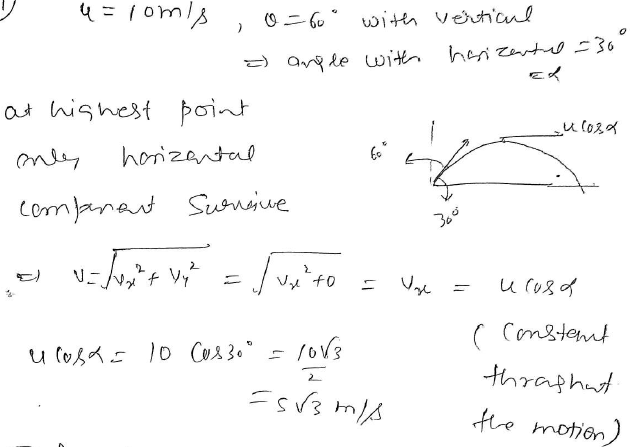 1) u = 10 m/s , θ = 60° with vertical
⇒ angle with horizental = 30°
= α
at highest point
only horizental
component survive
60°
u cos α
30°
⇒ V = √(Vx² + Vy²) = √(Vx² + 0) = Vx = u cos α
u cos α = 10 Cos 30° = 10√3/2
= 5√3 m/s
( Constent
throghout
the motion)